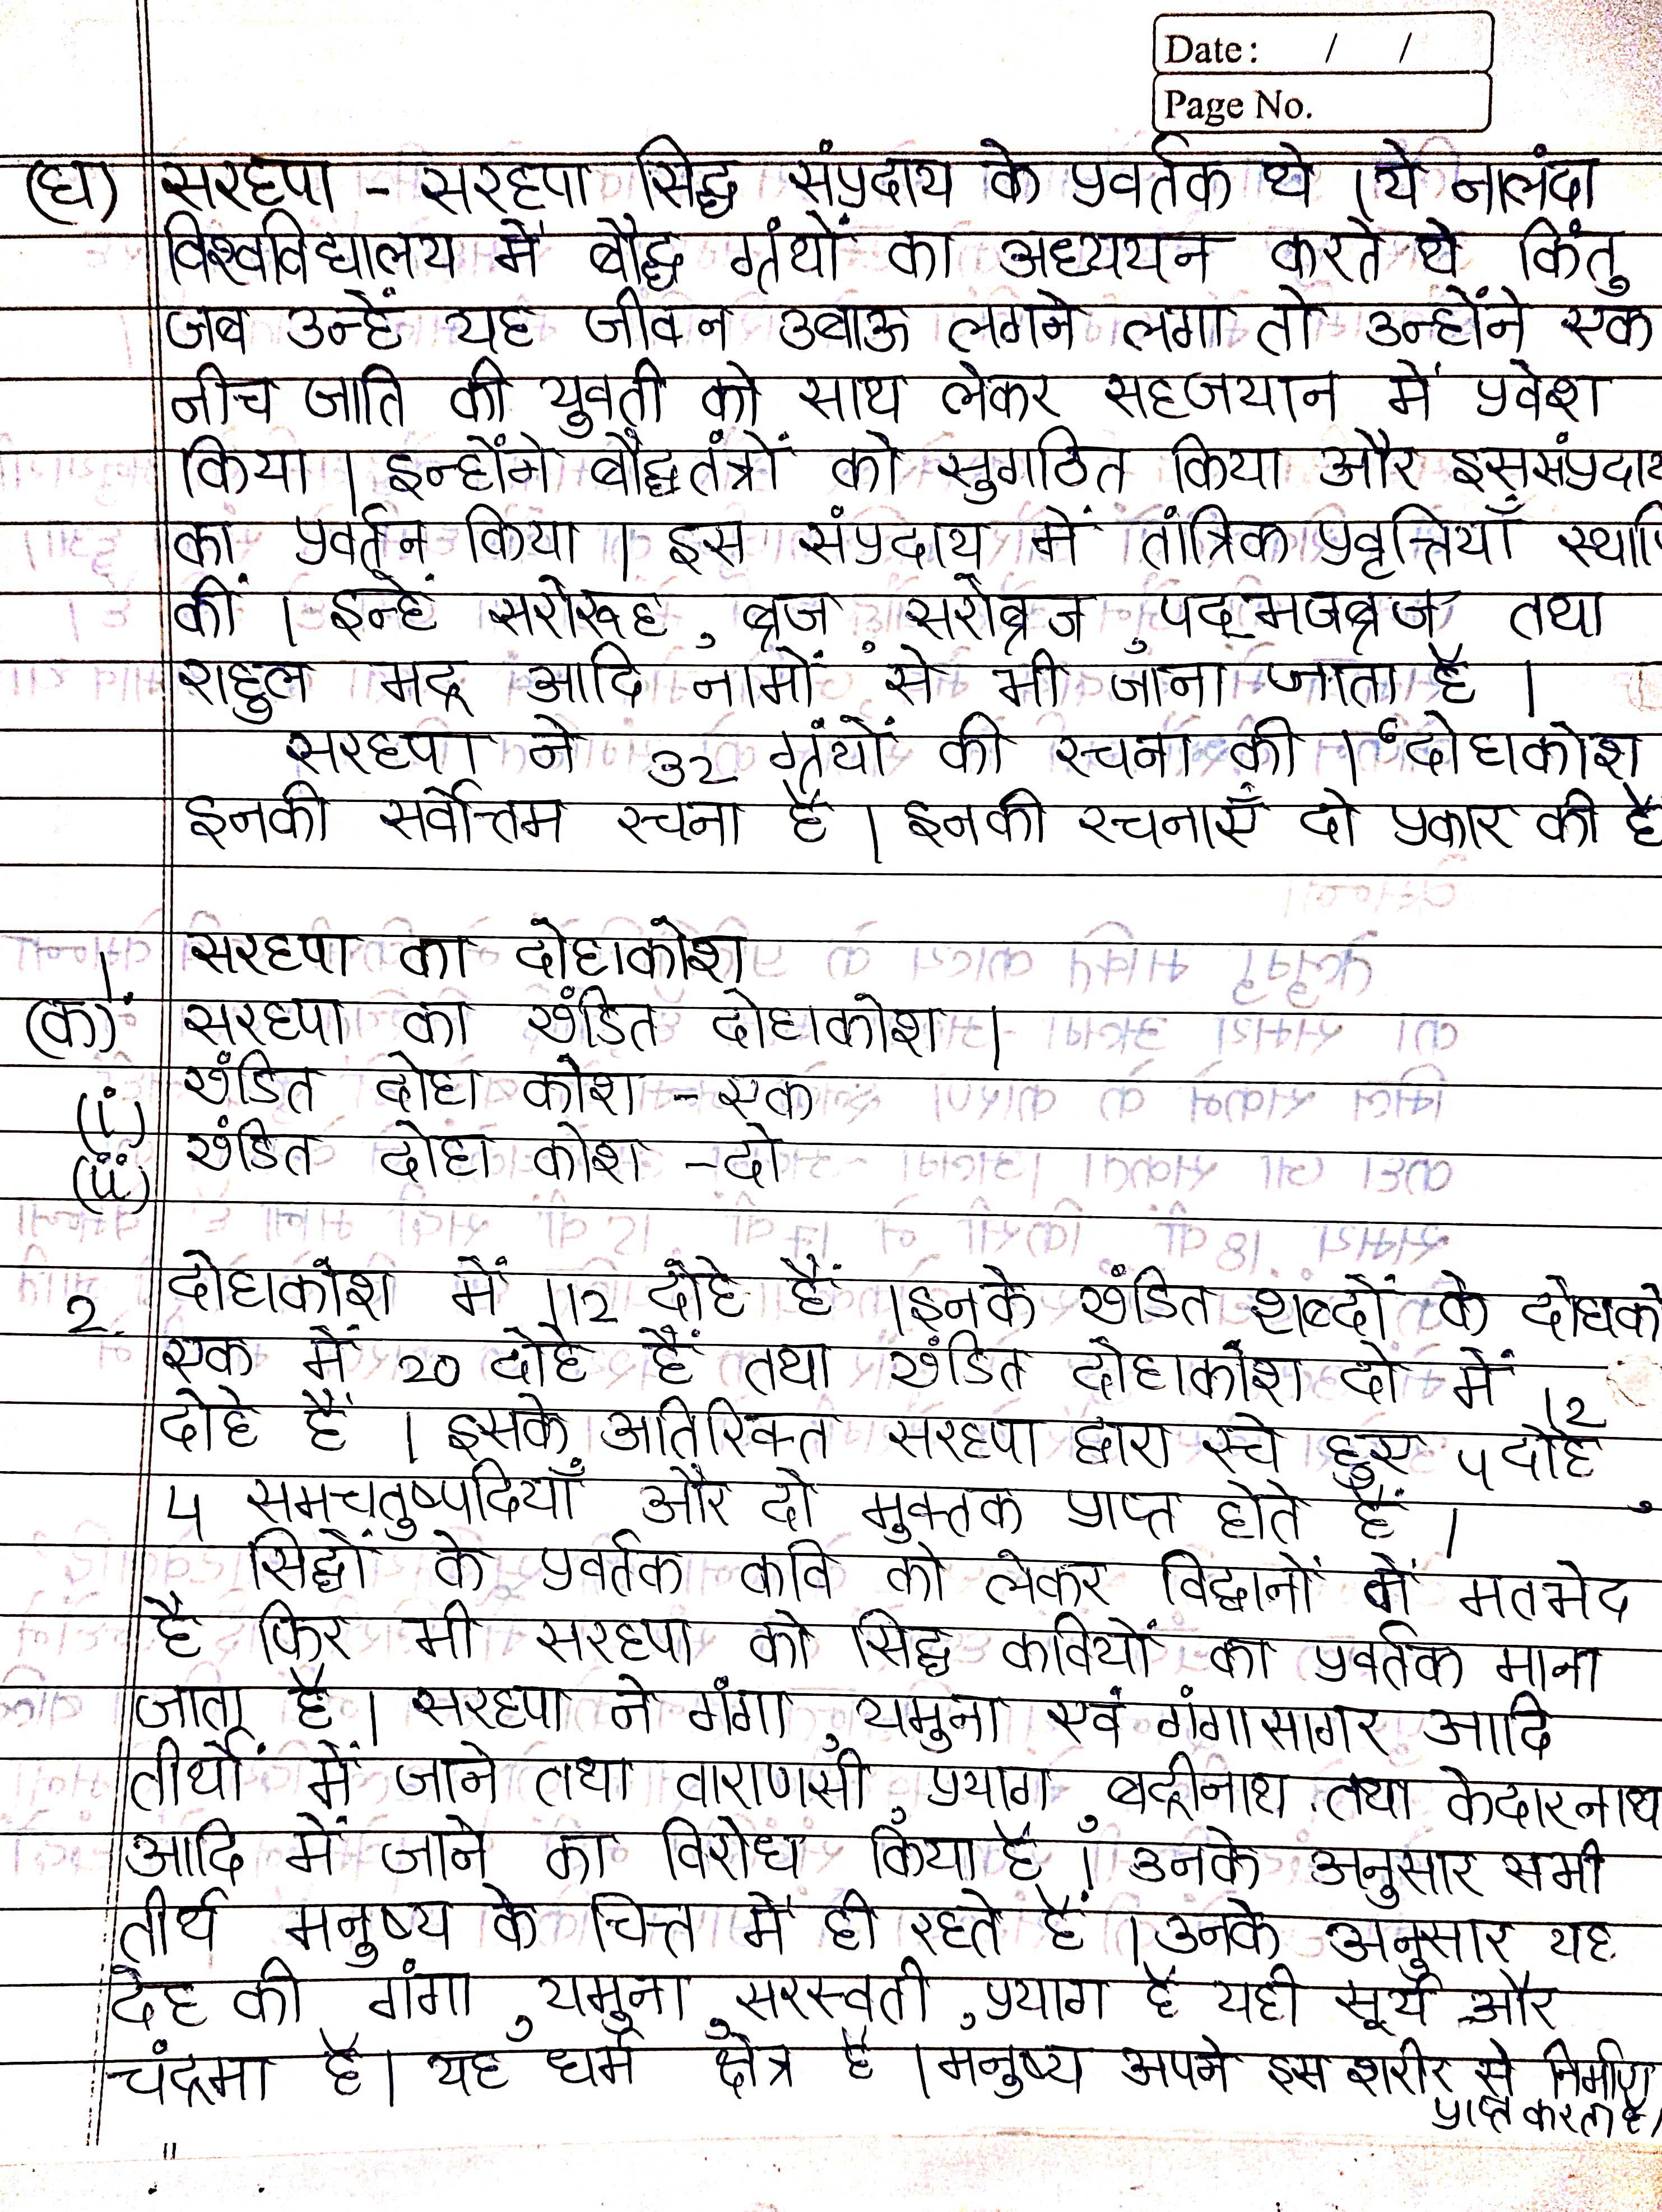 Date: / /
Page No.
(घ) सरहपा - सरहपा सिद्ध संप्रदाय के प्रवर्तक थे । ये नालंदा
विश्वविद्यालय में बौद्ध ग्रंथों का अध्ययन करते थे किंतु
जब उन्हें यह जीवन उबाऊ लगने लगा तो उन्होंने एक
नीच जाति की युवती को साथ लेकर सहजयान में प्रवेश
किया । इन्होंने बौद्धतंत्रों को सुगठित किया और इस संप्रदाय
का प्रवर्तन किया । इस संप्रदाय में तांत्रिक प्रवृत्तियाँ स्थापि
कीं । इन्हें सरोरूह, ब्रज सरोब्रज, पद्मजब्रज तथा
राहुल मद्र आदि नामों से भी जाना जाता है ।
सरहपा ने 32 ग्रंथों की रचना की । "दोहाकोश
इनकी सर्वोत्तम रचना है । इनकी रचनाएँ दो प्रकार की है
1. सरहपा का दोहाकोश
(क) सरहपा का खंडित दोहाकोश ।
(i) खंडित दोहा कोश - एक
(ii) खंडित दोहा कोश - दो
2. दोहाकोश में 112 दोहे हैं । इनके खंडित शब्दों के दोहाको
एक में 20 दोहे हैं तथा खंडित दोहाकोश दो में 12
दोहे हैं । इसके अतिरिक्त सरहपा द्वारा रचे हुए 4 दोहे,
4 समचतुष्पदियाँ और दो मुक्तक प्राप्त होते हैं ।
सिद्धों के प्रवर्तक कवि को लेकर विद्वानों में मतभेद
है फिर भी सरहपा को सिद्ध कवियों का प्रवर्तक माना
जाता है । सरहपा ने गंगा, यमुना एवं गंगासागर आदि
तीर्थों में जाने तथा वाराणसी, प्रयाग, बद्रीनाथ तथा केदारनाथ
आदि में जाने का विरोध किया है । उनके अनुसार सभी
तीर्थ मनुष्य के चित्त में ही रहते हैं । उनके अनुसार यह
देह की गंगा, यमुना, सरस्वती, प्रयाग है यही सूर्य और
चंद्रमा है । यह धर्म क्षेत्र है । मनुष्य अपने इस शरीर से निर्माण
प्राप्त करता है ।